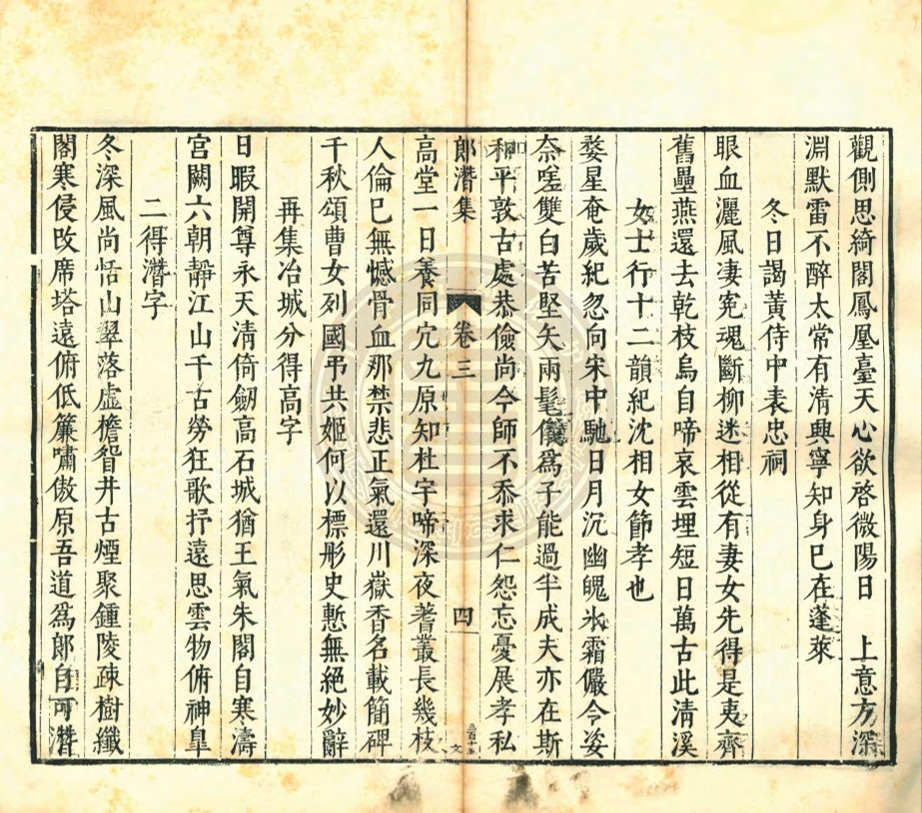 觀側思綺閣鳳凰臺天心欲啓微陽日　上意方深
淵默雷不醉太常有清興寧知身已在蓬萊
冬日謁黃侍中表忠祠
眼血灑風凄寃魂斷柳迷相從有妻女先得是夷齊
舊壘燕還去乾枝烏自啼哀雲埋短日萬古此清溪
女士行十二韻紀沈相女節孝也
婺星奄歲紀忽向宋中馳日月沉幽魄氷霜儼令姿
奈嗟雙白苦堅矢兩髦儀爲子能過半成夫亦在斯
和平敦古處恭儉尚今師不忝求仁怨忘憂展孝私
郎潛集
卷三
四
高堂一日養同穴九原知杜宇啼深夜蓍叢長幾枝
人倫已無憾骨血那禁悲正氣還川嶽香名載簡碑
千秋頌曹女列國弔共姬何以標彤史慙無絕妙辭
再集冶城分得高字
日暇開尊永天清倚劒高石城猶王氣朱閣自寒濤
宮闕六朝靜江山千古勞狂歌抒遠思雲物俯神臯
二得潛字
冬深風尚恬山翠落虛檐眢井古煙聚鍾陵疎樹纖
閣寒侵改席塔遠俯低簾嘯傲原吾道爲郎自可潛